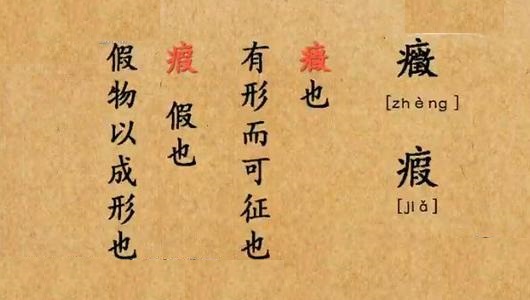 癥
[zhèng]
瘕
[jiǎ]
癥也
有形而可征也
瘕 假也
假物以成形也